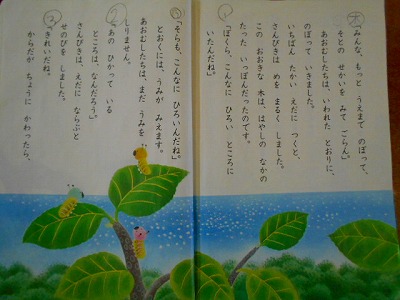 木
「みんな、もっと うえまで のぼって、
そとの せかいを みて ごらん。」
あおむしたちは、いわれた とおりに、
のぼって いきました。
いちばん たかい えだに つくと、
さんびきは めを まるく しました。
この おおきな 木は、はやしの なかの
たった いっぽんだったのです。
「ぼくら、こんなに ひろい ところに
いたんだね。」
「そらも、こんなに ひろいんだね。」
とおくには、うみが みえます。
あおむしたちは、まだ うみを
しりません。
「あの ひかって いる
ところは、なんだろう。」
さんびきは、えだに ならぶと
せのびを しました。
「きれいだね。
からだが ちょうに かわったら、